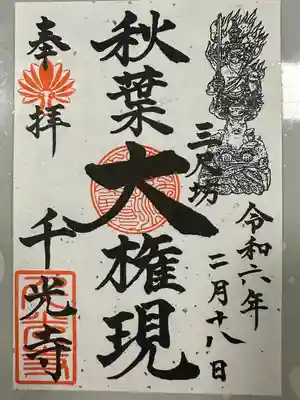 令和六年
二月十八日
三尺坊
秋葉大権現
奉拝
千光寺